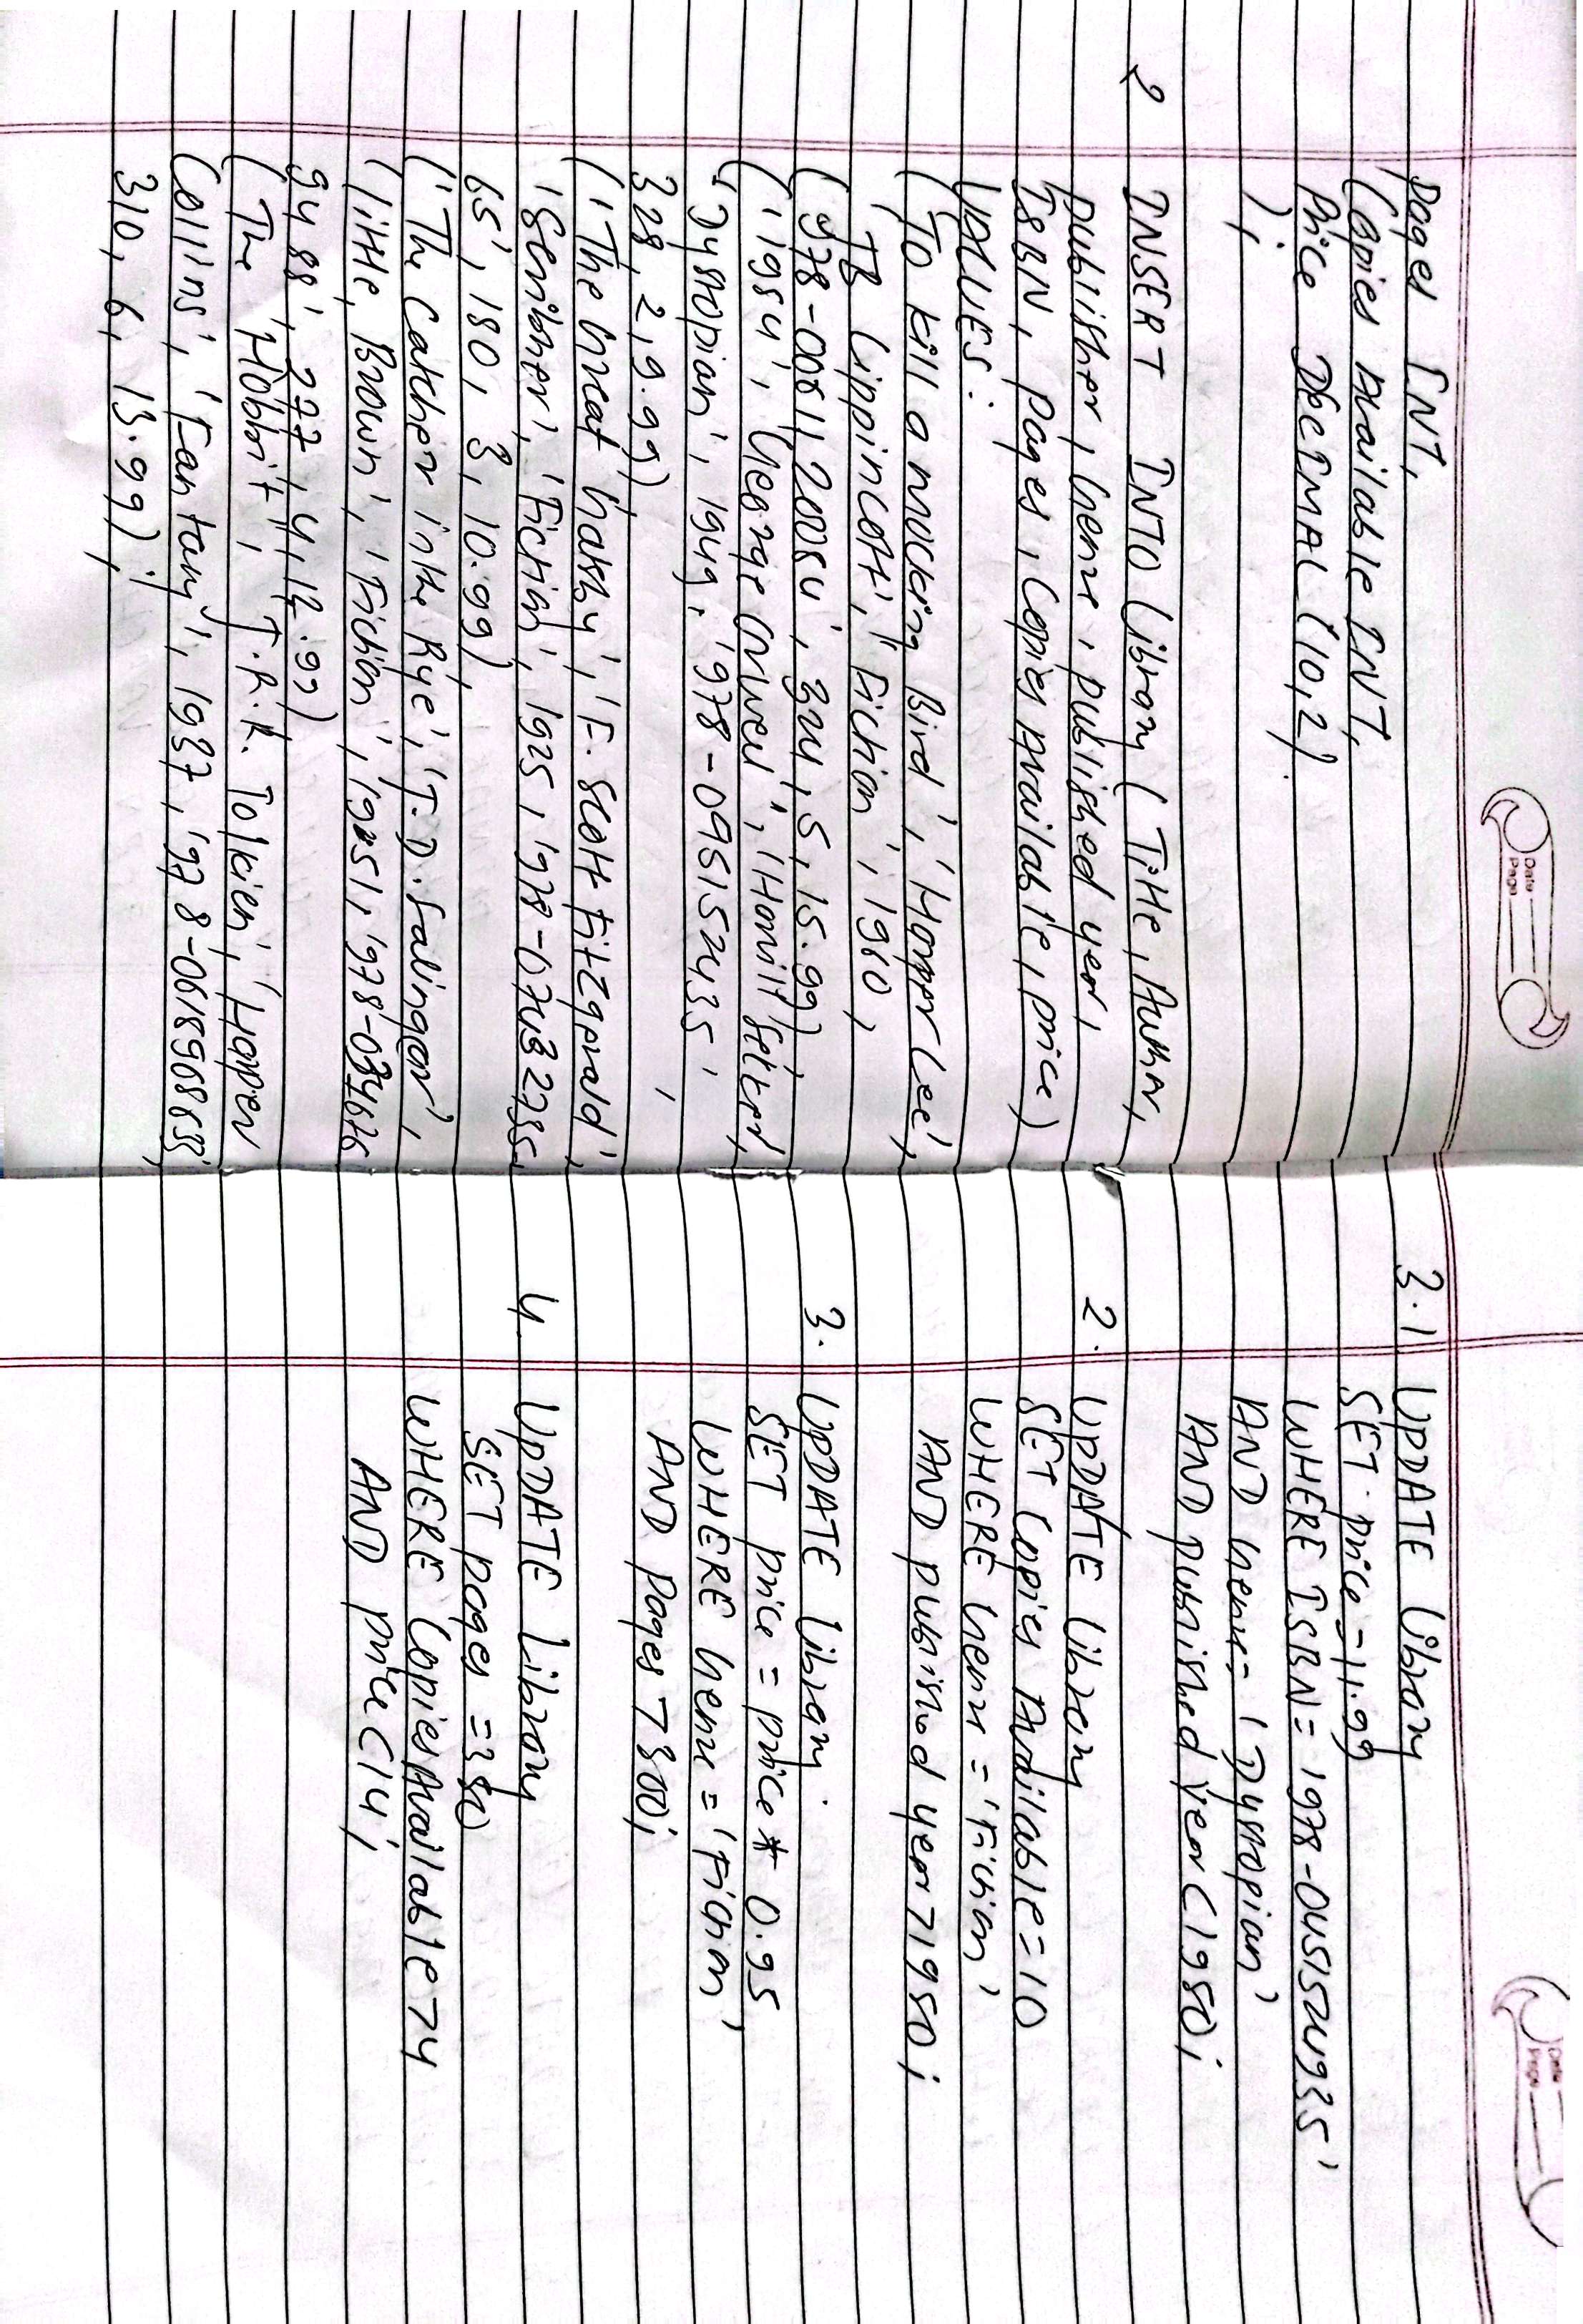 Date
Page
pages INT,
Copies Available INT,
Price DECIMAL (10,2)
);
2 INSERT INTO Library (Title, Author,
publisher, Genre, published year,
ISBN, pages, Copies Available, price)
VALUES:
(To kill a mocking Bird', 'Harper Lee',
'JB Lippincott', 'Fiction', 1960,
(978-0061120084', 324, 5, 15.99)
('1984', 'George Orwell', 'Harvill Secker',
'Dystopian', 1949, '978-0451524935',
328, 2, 9.99),
('The Great Gatsby', 'F. Scott Fitzgerald',
'Scribner', 'Fiction', 1925, '978-07432735
65', 180, 3, 10.99),
('The Catcher in the Rye', 'J.D. Salinger',
'Little, Brown', 'Fiction', 1951, '978-03
9488', 277, 4, 12.99)
('The Hobbit', 'J.R.R. Tolkien', 'Harper
Collins', 'Fantasy', 1937, '978-0618968633',
310, 6, 13.99);
Date
Page
3.1 UPDATE Library
SET price = 11.99
WHERE ISBN = '978-0451524935'
AND Genre = 'Dystopian'
AND published Year < 1950;
2. UPDATE Library
SET Copies Available = 10
WHERE Genre = 'Fiction'
AND published year > 1950;
3. UPDATE Library
SET price = price * 0.95
WHERE Genre = 'Fiction'
AND pages > 300;
4. UPDATE Library
SET pages = 350
WHERE Copies Available > 4
AND price < 14;